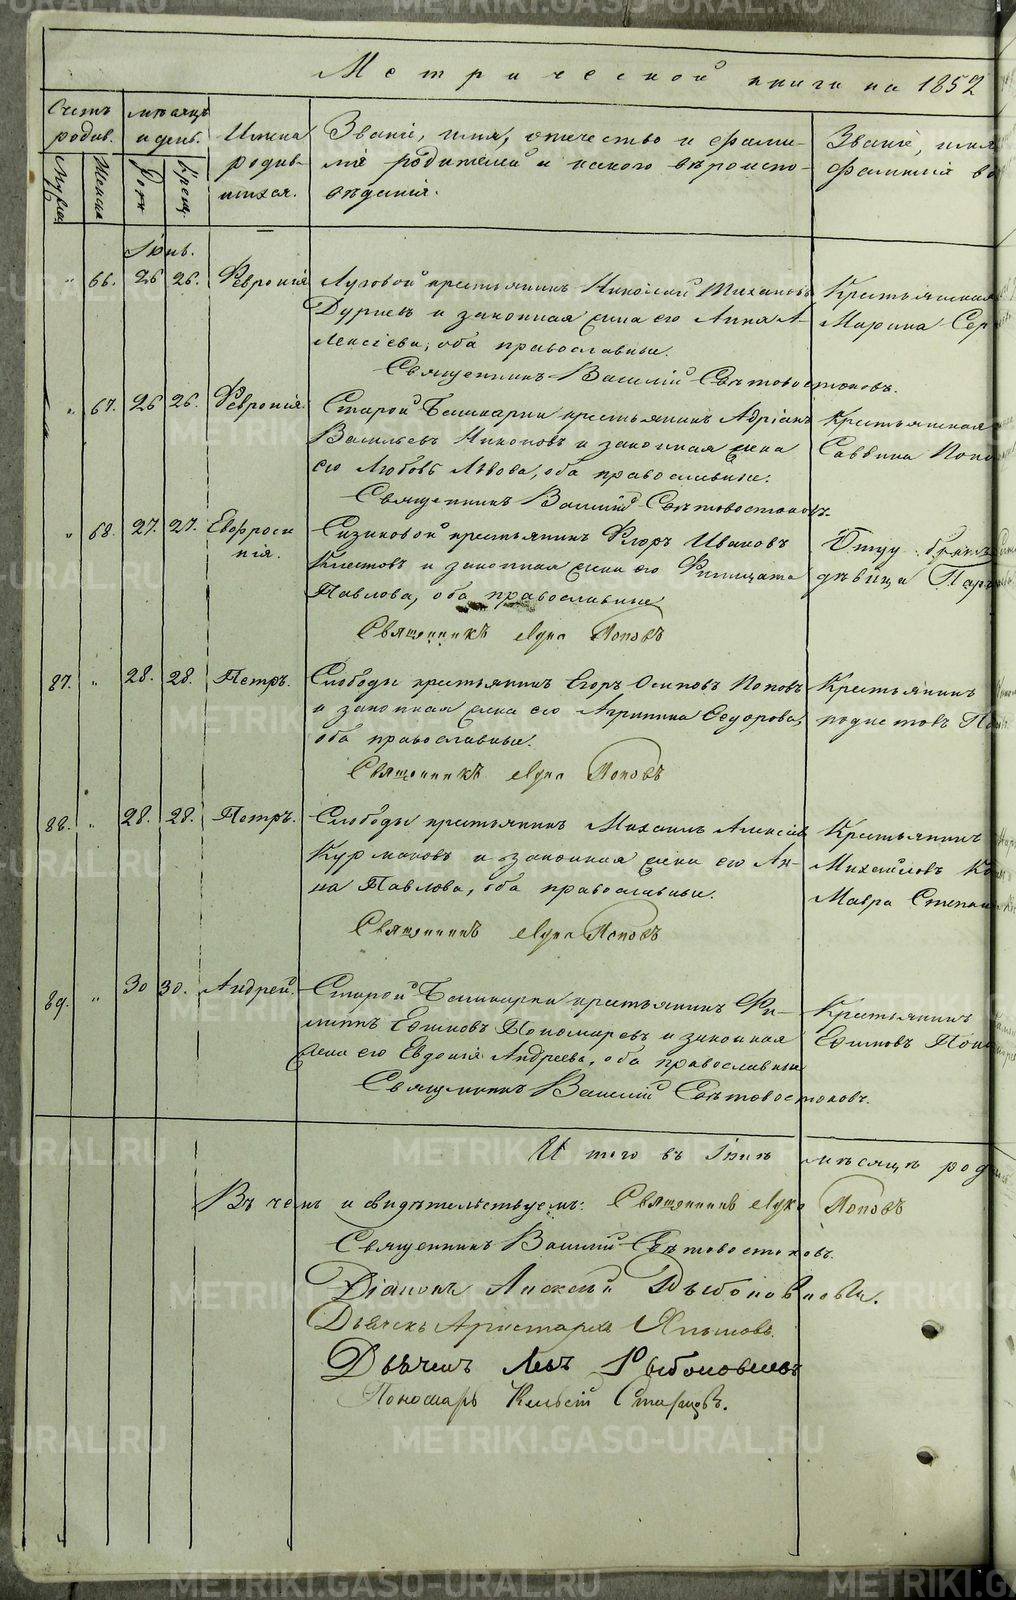 Метрической книги на 1852
Счетъ родив.
мѣсяцъ и день.
Имена родив-шихся.
Званіе, имя, отечество и фами-
лія родителей и какого вѣроиспо-
вѣданія.
Званіе, имя
фамилія во
Мужеск
Женск
Рож
Крещ.
Іюнь.
" 66. 26 26. Февронія Луговой крестьянинъ Николай Тихановъ
Дурневъ и законная жена его Анна А-
лексіева, оба православные.
Священникъ Василій Свѣтовостоковъ.
Крестьянская
Марина Сер
" 67. 26 26. Февронія. Старой Башкарки крестьянинъ Адріанъ
Васильевъ Никоновъ и законная жена
его Любовь Львова, оба православные.
Священникъ Василій Свѣтовостоковъ.
Крестьянская
Саввина Поно
" 68. 27. 27. Евфроси-
нія.
Сизиковой крестьянинъ Флоръ Ивановъ
Клестовъ и законная жена его Фетината
Павлова, оба православные
Священникъ Лука Поповъ
Отцу братъ
дѣвица Пар
87. " 28. 28. Петръ. Слободы крестьянинъ Егоръ Осиповъ Поповъ
и законная жена его Агрипина Ѳедорова,
оба православные.
Священникъ Лука Поповъ
Крестьянинъ
88. " 28. 28. Петръ. Слободы крестьянинъ Михаилъ Алексіевъ
Курмаковъ и законная жена его Ан-
на Павлова, оба православные.
Священникъ Лука Поповъ
Крестьянинъ
Михайловъ К
Мавра Степан
89. " 30 30. Андрей. Старой Башкарки крестьянинъ Фи-
липпъ Ефимовъ Пономаревъ и законная
жена его Евдокія Андреева, оба православные
Священникъ Василій Свѣтовостоковъ.
Крестьянинъ
Ефимовъ Поно
Итого въ Іюнѣ мѣсяцѣ род
Въ чемъ и свидѣтельствуемъ: Священникъ Лука Поповъ
Священникъ Василій Свѣтовостоковъ.
Діаконъ Алексѣй
Дьячекъ Аристархъ
Дьячекъ Левъ Рыболовлевъ
Пономарь Старцовъ.
METRIKI.GASO-URAL.RU